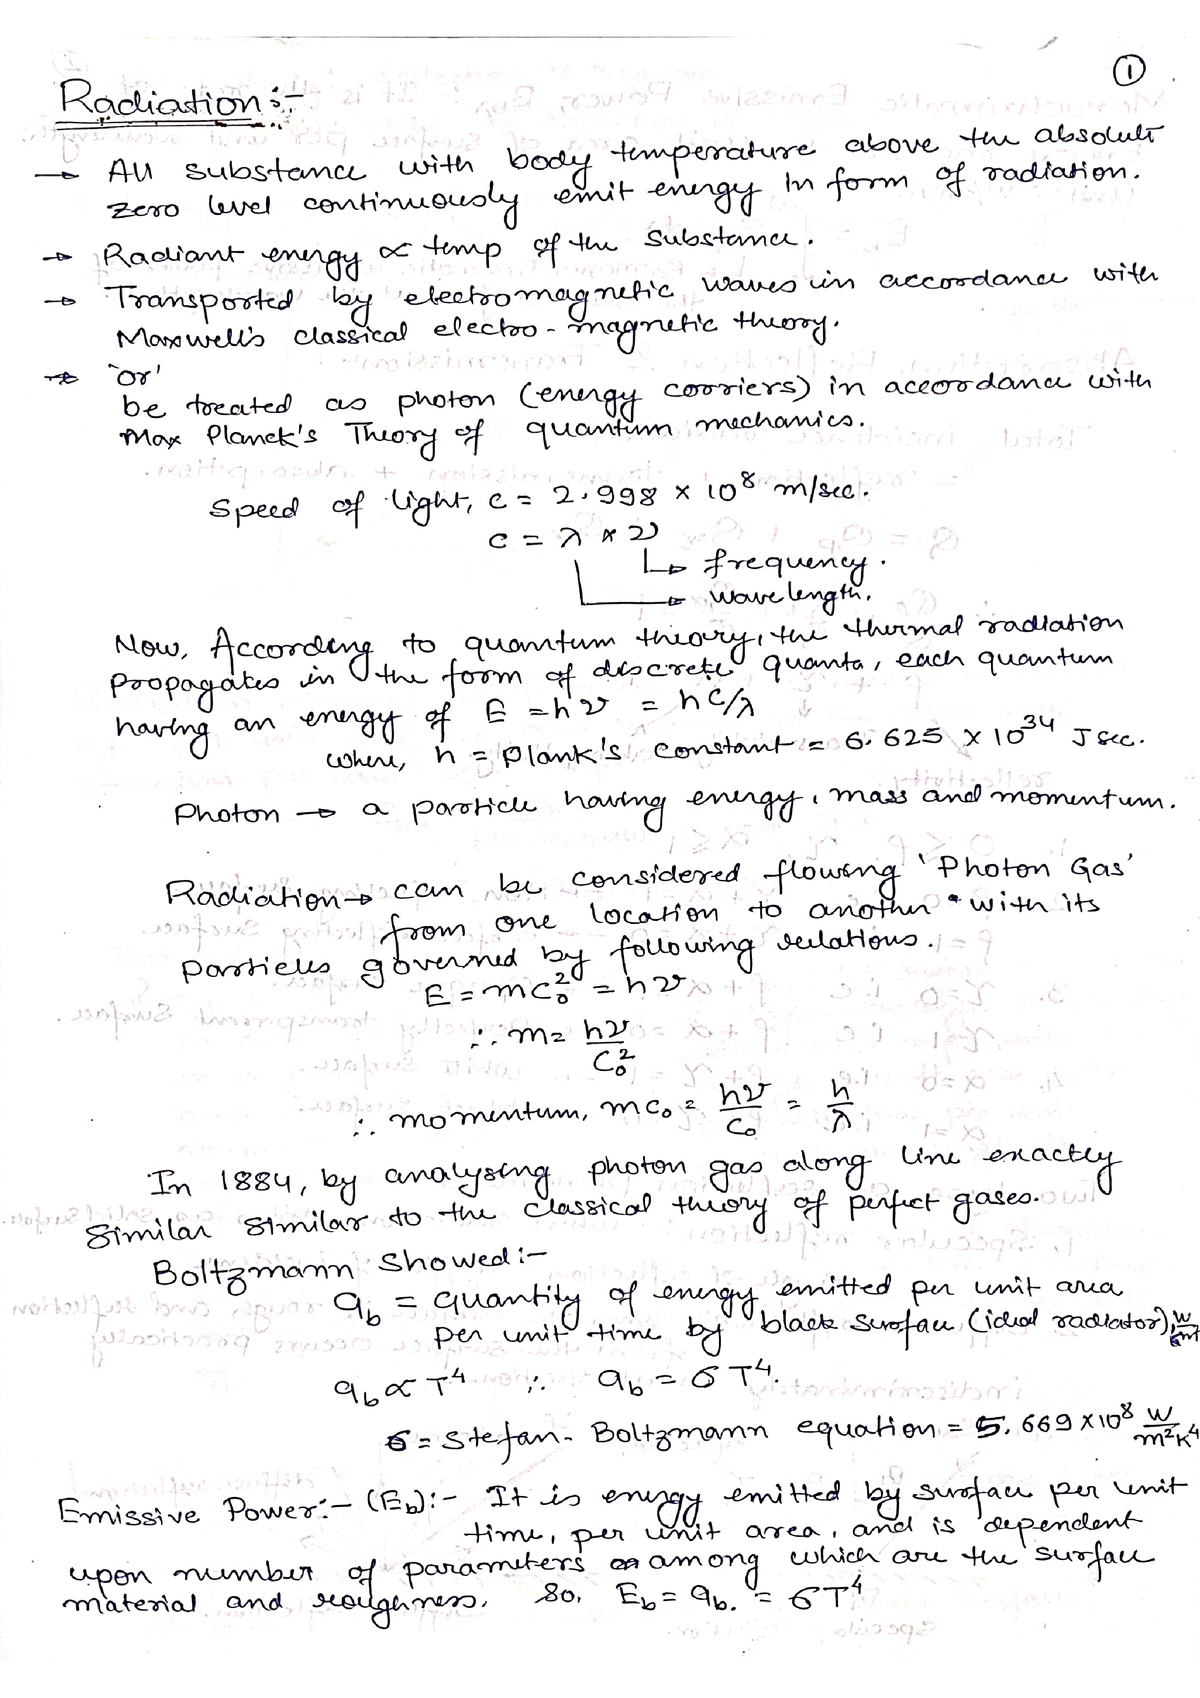 ①
Radiation :-
→ All substance with body temperature above the absolute
zero level continuously emit energy in form of radiation.
→ Radiant energy ∝ temp of the substance.
→ Transported by electromagnetic waves in accordance with
Maxwell's classical electro-magnetic theory.
→ 'or'
be treated as photon (energy carriers) in accordance with
Max Planck's Theory of quantum mechanics.
Speed of light, c = 2.998 × 10⁸ m/sec.
c = λ × ν
↳ frequency.
↳ wavelength.
Now, According to quantum theory, the thermal radiation
propagates in the form of discrete quanta, each quantum
having an energy of E = hν = hc/λ
where, h = Plank's constant = 6.625 × 10³⁴ J sec.
Photon → a particle having energy, mass and momentum.
Radiation → can be considered flowing 'Photon Gas'
from one location to another with its
particles governed by following relations.
E = mc₀² = hν
∴ m = hν/C₀²
∴ momentum, mc₀ = hν/C₀ = h/λ
In 1884, by analysing photon gas along line exactly
Similar similar to the classical theory of perfect gases.
Boltzmann Showed :-
q_b = quantity of energy emitted per unit area
per unit time by black surface (ideal radiator),
q_b ∝ T⁴ ∴ q_b = σT⁴.
σ = Stefan-Boltzmann equation = 5.669 × 10⁸ W/m²K⁴
Emissive Power :- (E_b) :- It is energy emitted by surface per unit
time, per unit area, and is dependent
upon number of parameters among which are the surface
material and roughness. So, E_b = q_b. = σT⁴